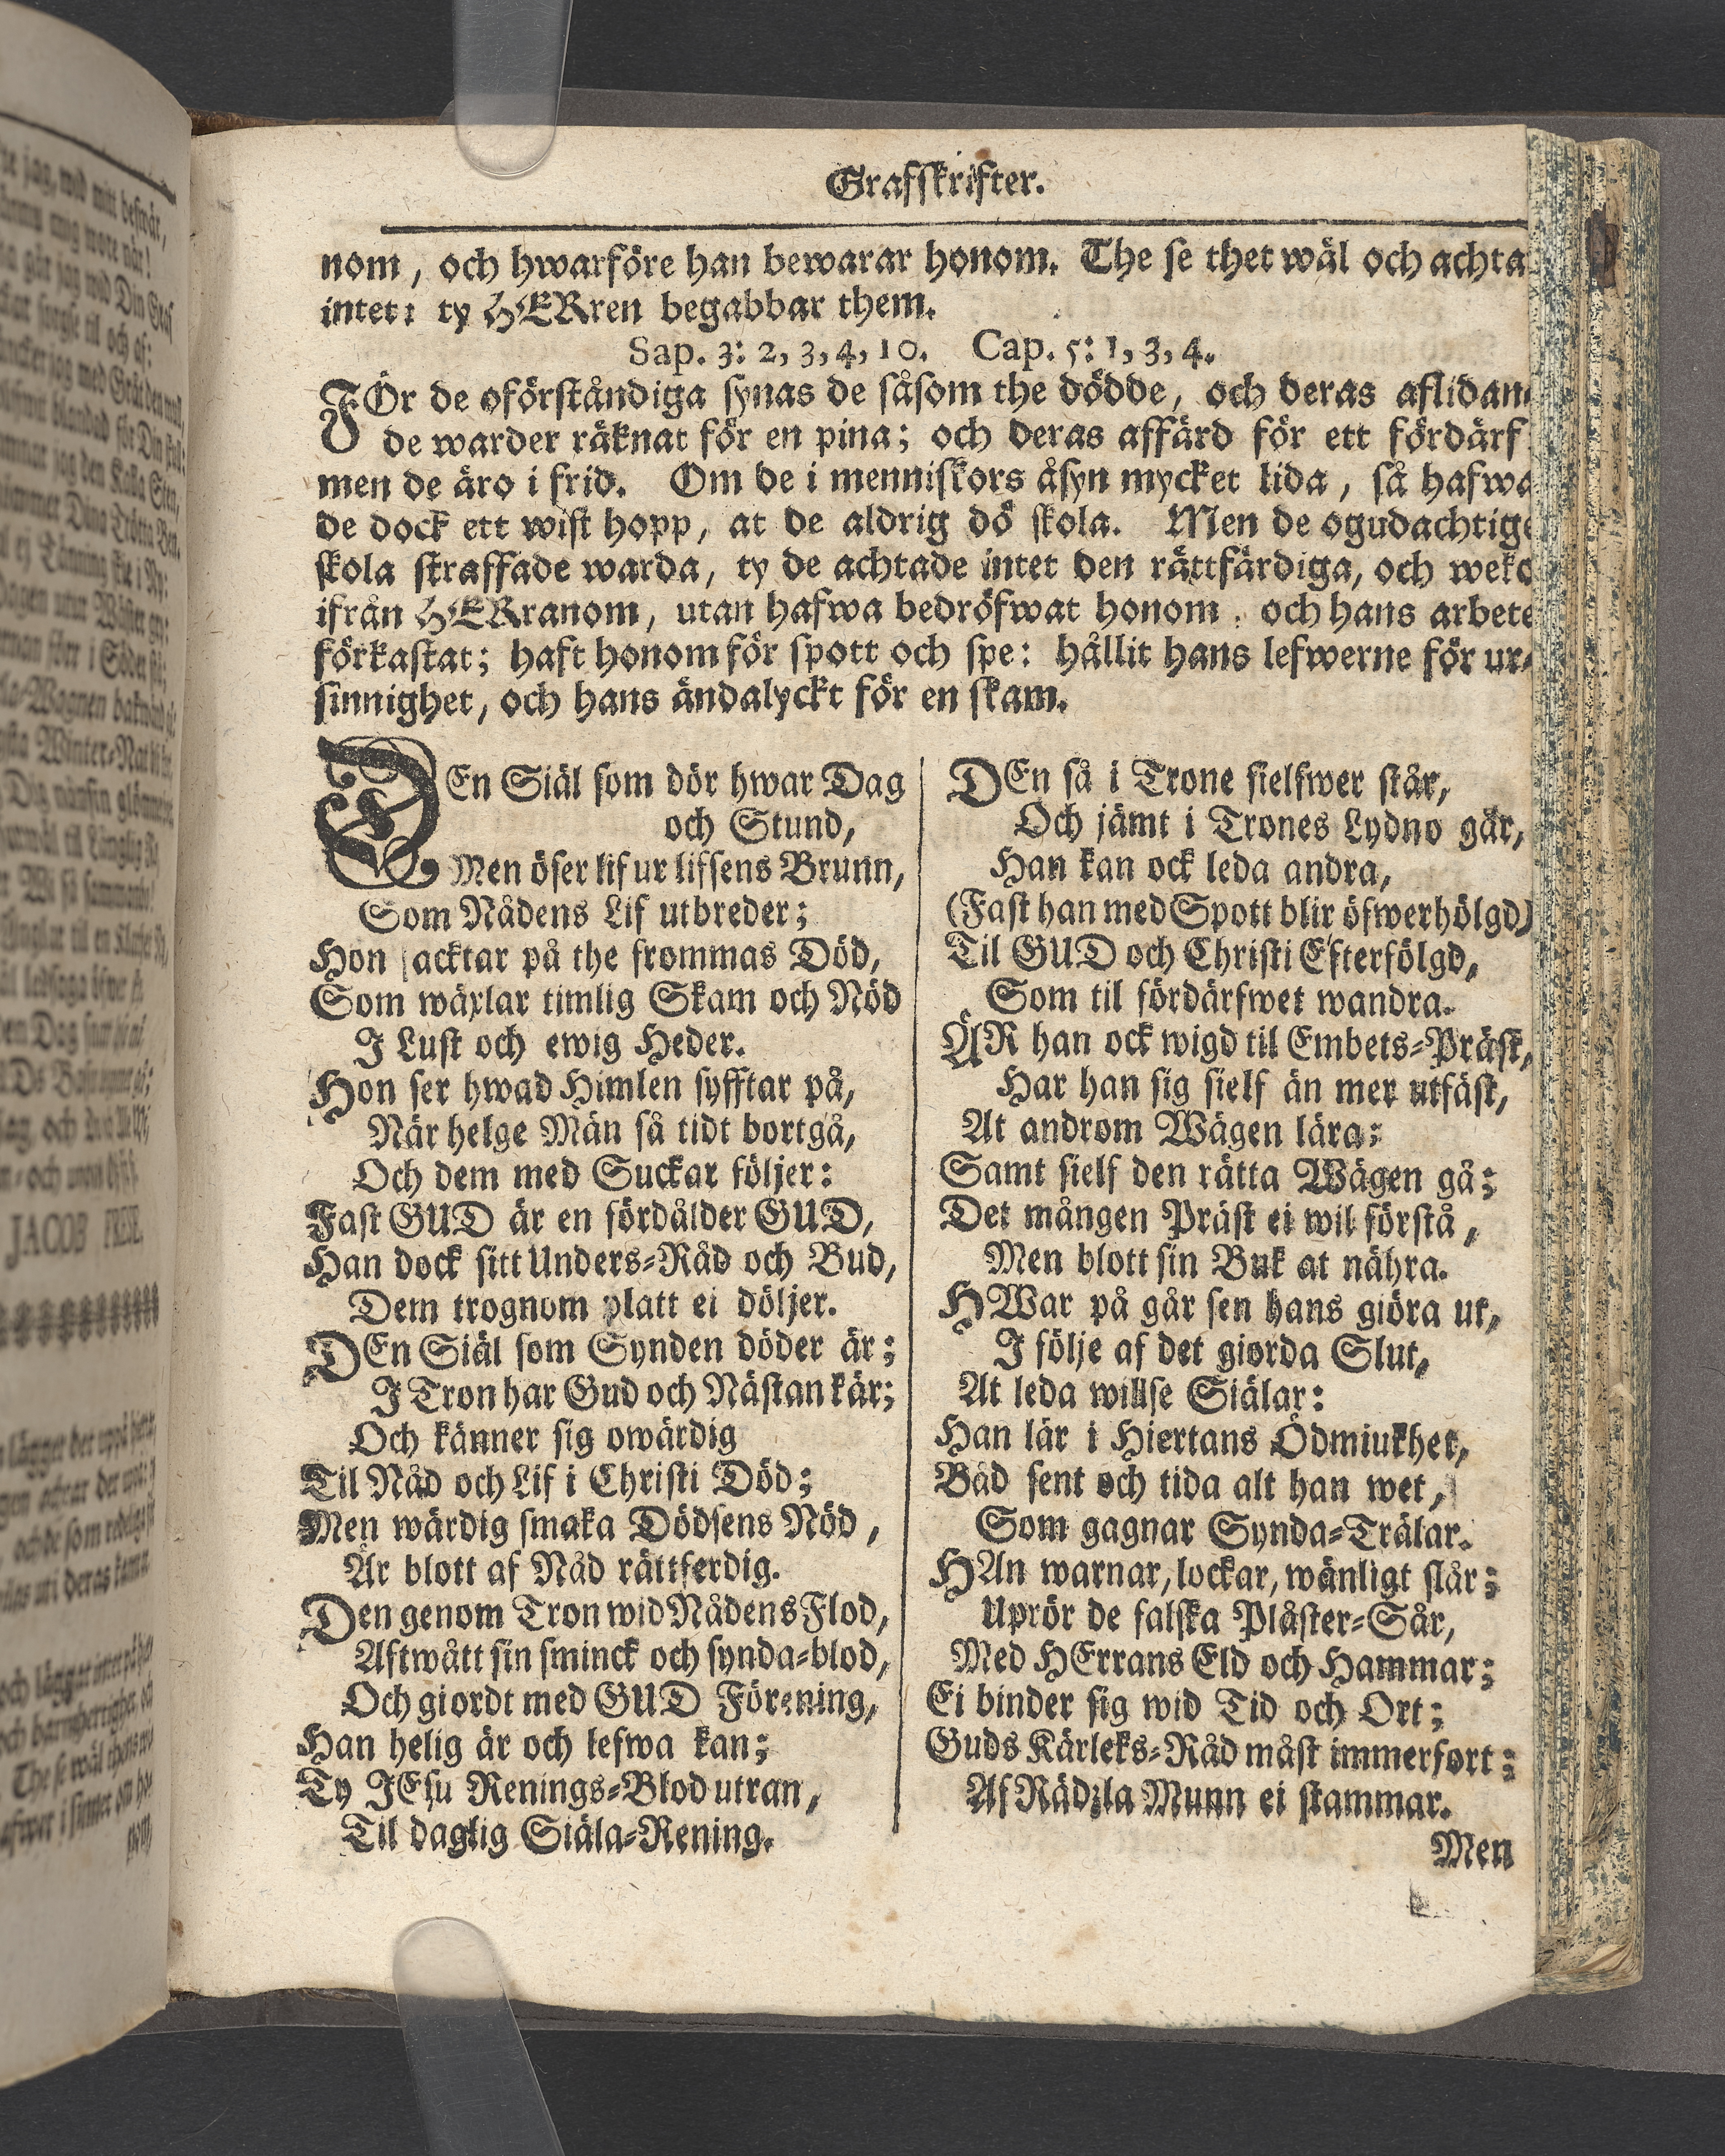 Grafskrifter.
nom, och hwarföre han bewarar honom. The se thet wäl och achta
intet: ty HERren begabbar them.
Sap. 3: 2, 3, 4, 10. Cap. 5: 1, 3, 4.
FÖr de oförståndiga synas de såsom the dödde, och deras aflidan
de warder räknat för en pina; och deras affärd för ett fördärf
men de äro i frid. Om de i menniskors åsyn mycket lida, så hafwa
de dock ett wist hopp, at de aldrig dö skola. Men de ogudachtige
skola straffade warda, ty de achtade intet den rättfärdiga, och weko
ifrån HERranom, utan hafwa bedröfwat honom, och hans arbete
förkastat; haft honom för spott och spe: hållit hans lefwerne för ur-
sinnighet, och hans ändalyckt för en skam.
DEn Siäl som dör hwar Dag
och Stund,
Men öser lif ur lifsens Brunn,
Som Nådens Lif utbreder;
Hon acktar på the frommas Död,
Som wäxlar timlig Skam och Nöd
I Lust och ewig Heder.
Hon ser hwad Himlen syfftar på,
När helge Män så tidt bortgå,
Och dem med Suckar följer:
Fast GUD är en fördålder GUD,
Han dock sitt Unders-Råd och Bud,
Dem trognom platt ei döljer.
DEn Siäl som Synden döder är;
I Tron har Gud och Nästan kär;
Och känner sig owärdig
Til Nåd och Lif i Christi Död;
Men wärdig smaka Dödsens Nöd,
Är blott af Nåd rättferdig.
Den genom Tron wid Nådens Flod,
Aftwått sin sminck och synda-blod,
Och giordt med GUD Förening,
Han helig är och lefwa kan;
Ty JEsu Renings-Blod utran,
Til daglig Siäla-Rening.
DEn så i Trone sielfwer står,
Och jämt i Trones Lydno går,
Han kan ock leda andra,
(Fast han med Spott blir öfwerhölgd)
Til GUD och Christi Efterfölgd,
Som til fördärfwet wandra.
ÄR han ock wigd til Embets-Präst,
Har han sig sielf än mer utfäst,
At androm Wägen lära:
Samt sielf den rätta Wägen gå;
Det mången Präst ei wil förstå,
Men blott sin Buk at nähra.
HWar på går sen hans giöra ut,
I följe af det giorda Slut,
At leda willse Siälar:
Han lär i Hiertans Ödmiukhet,
Båd sent och tida alt han wet,
Som gagnar Synda-Trälar.
HAn warnar, lockar, wänligt slår;
Uprör de falska Plåster-Sår,
Med HErrans Eld och Hammar;
Ei binder sig wid Tid och Ort;
Guds Kärleks-Råd måst immerfort;
Af Rädzla Munn ei stammar.
Men